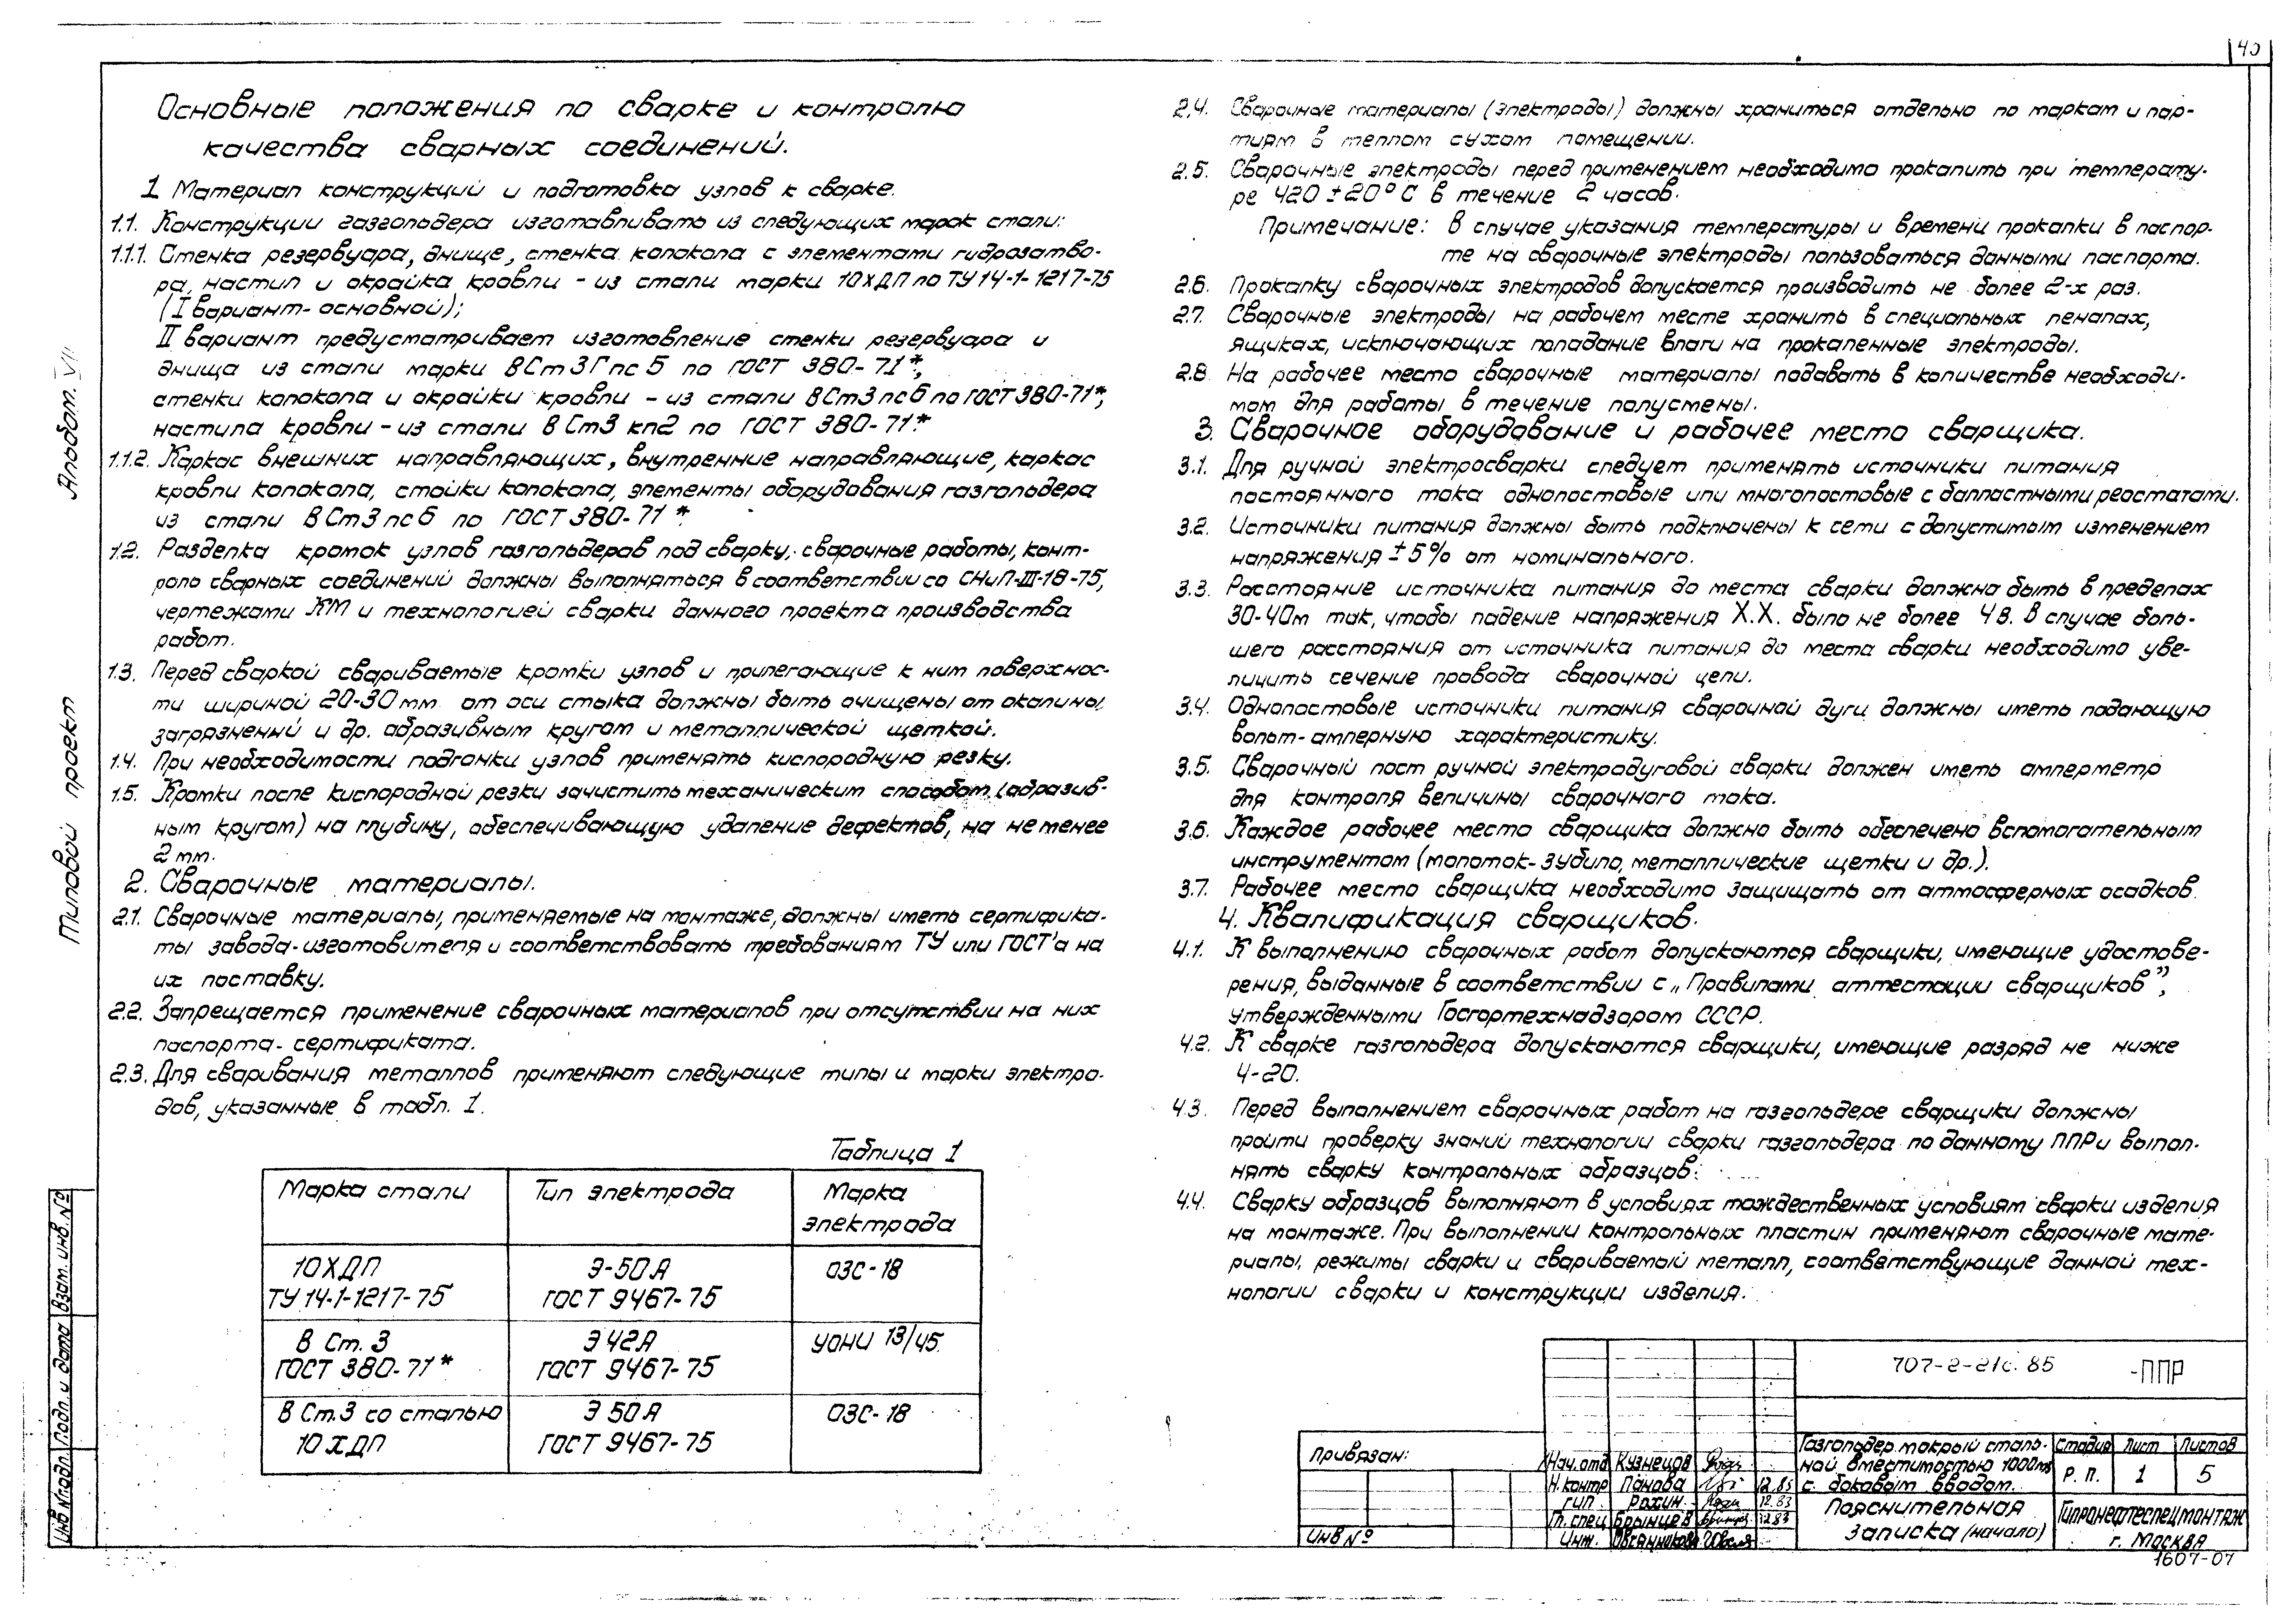 Основные положения по сварке и контролю
качества сварных соединений.
1 Материал конструкций и подготовка узлов к сварке.
1.1. Конструкции газгольдера изготавливать из следующих марок стали:
1.1.1. Стенка резервуара, днище, стенка колокола с элементами гидрозатво-
ра, настил и окрайка кровли – из стали марки 10ХДП по ТУ 14-1-1217-75
(I вариант- основной);
II вариант предусматривает изготовление стенки резервуара и
днища из стали марки ВСт3Гпс5 по ГОСТ 380-71*;
стенки колокола и окрайки кровли – из стали ВСт3пс6 по ГОСТ 380-71*;
настила кровли – из стали ВСт3 кп2 по ГОСТ 380-71*
1.1.2. Каркас внешних направляющих, внутренние направляющие, каркас
кровли колокола, стойки колокола, элементы оборудования газгольдера
из стали ВСт3пс6 по ГОСТ 380-71*
1.2. Разделка кромок узлов газгольдеров под сварку, сварочные работы, конт-
роль сварных соединений должны выполняться в соответствии со СНиП-III-18-75,
чертежами КМ и технологией сварки данного проекта производства
работ.
1.3. Перед сваркой свариваемые кромки узлов и прилегающие к ним поверхнос-
ти шириной 20-30мм от оси стыка должны быть очищены от окалины,
загрязнений и др. абразивным кругом и металлической щеткой.
1.4. При необходимости подгонки узлов применять кислородную резку.
1.5. Кромки после кислородной резки зачистить механическим способом (абразив-
ным кругом) на глубину, обеспечивающую удаление дефектов, на не менее
2мм.
2. Сварочные материалы.
2.1. Сварочные материалы, применяемые на монтаже, должны иметь сертифика-
ты завода-изготовителя и соответствовать требованиям ТУ или ГОСТ'а на
их поставку.
2.2. Запрещается применение сварочных материалов при отсутствии на них
паспорта-сертификата.
2.3. Для сваривания металлов применяют следующие типы и марки электро-
дов, указанные в табл. 1.
Таблица 1
Марка стали Тип электрода Марка
электрода
10ХДП Э-50А ОЗС-18
ТУ 14-1-1217-75 ГОСТ 9467-75
В Ст. 3 Э42А УОНИ 13/45.
ГОСТ 380-71* ГОСТ 9467-75
В Ст.3 со сталью Э 50А ОЗС-18
10 ХДП ГОСТ 9467-75
2.4. Сварочные материалы (электроды) должны храниться отдельно по маркам и пар-
тиям в теплом сухом помещении.
2.5. Сварочные электроды перед применением необходимо прокалить при температу-
ре 420±20°С в течение 2 часов.
Примечание: В случае указания температуры и времени прокалки в паспор-
те на сварочные электроды пользоваться данными паспорта.
2.6. Прокалку сварочных электродов допускается производить не более 2-х раз.
2.7. Сварочные электроды на рабочем месте хранить в специальных пеналах,
ящиках, исключающих попадание влаги на прокаленные электроды.
2.8. На рабочее место сварочные материалы подавать в количестве необходи-
мом для работы в течение полусмены.
3. Сварочное оборудование и рабочее место сварщика.
3.1. Для ручной электросварки следует применять источники питания
постоянного тока однопостовые или многопостовые с балластными реостатами.
3.2. Источники питания должны быть подключены к сети с допустимым изменением
напряжения ±5% от номинального.
3.3. Расстояние источника питания до места сварки должна быть в пределах
30-40м так, чтобы падение напряжения Х.Х. было не более 4в. В случае боль-
шего расстояния от источника питания до места сварки необходимо уве-
личить сечение провода сварочной цепи.
3.4. Однопостовые источники питания сварочной дуги должны иметь падающую
вольт-амперную характеристику.
3.5. Сварочный пост ручной электродуговой сварки должен иметь амперметр
для контроля величины сварочного тока.
3.6. Каждое рабочее место сварщика должно быть обеспечено вспомогательным
инструментом (молоток-зубило, металлические щетки и др.).
3.7. Рабочее место сварщика необходимо защищать от атмосферных осадков.
4. Квалификация сварщиков.
4.1. К выполнению сварочных работ допускаются сварщики, имеющие удостове-
рения, выданные в соответствии с „Правилами аттестации сварщиков",
утвержденными Госгортехнадзором СССР.
4.2. К сварке газгольдера допускаются сварщики, имеющие разряд не ниже
4-го.
4.3. Перед выполнением сварочных работ на газгольдере сварщики должны
пройти проверку знаний технологии сварки газгольдера по данному ППР и выпол-
нять сварку контрольных образцов.
4.4. Сварку образцов выполняют в условиях тождественных условиям сварки изделия
на монтаже. При выполнении контрольных пластин применяют сварочные мате-
риалы, режимы сварки и свариваемый металл, соответствующие данной тех-
нологии сварки и конструкции изделия.
Альбом. VII
Типовой проект
Инв.№подл. Подп. и дата Взам. инв. №
707-2-21с.85 -ППР
Привязан:
Инв №
Нач.отд Кузнецов
Н.контр Панова 12.83
ГИП Рохин 12.83
Гл.спец Брынцев 12.83
Инж. Овсянникова
Газгольдер мокрый сталь-
ной вместимостью 1000м3
с боковым вводом.
Стадия Лист Листов
Р. П. 1 5
Пояснительная
записка (начало)
Гипронефтеспецмонтаж
г. Москва
1607-07